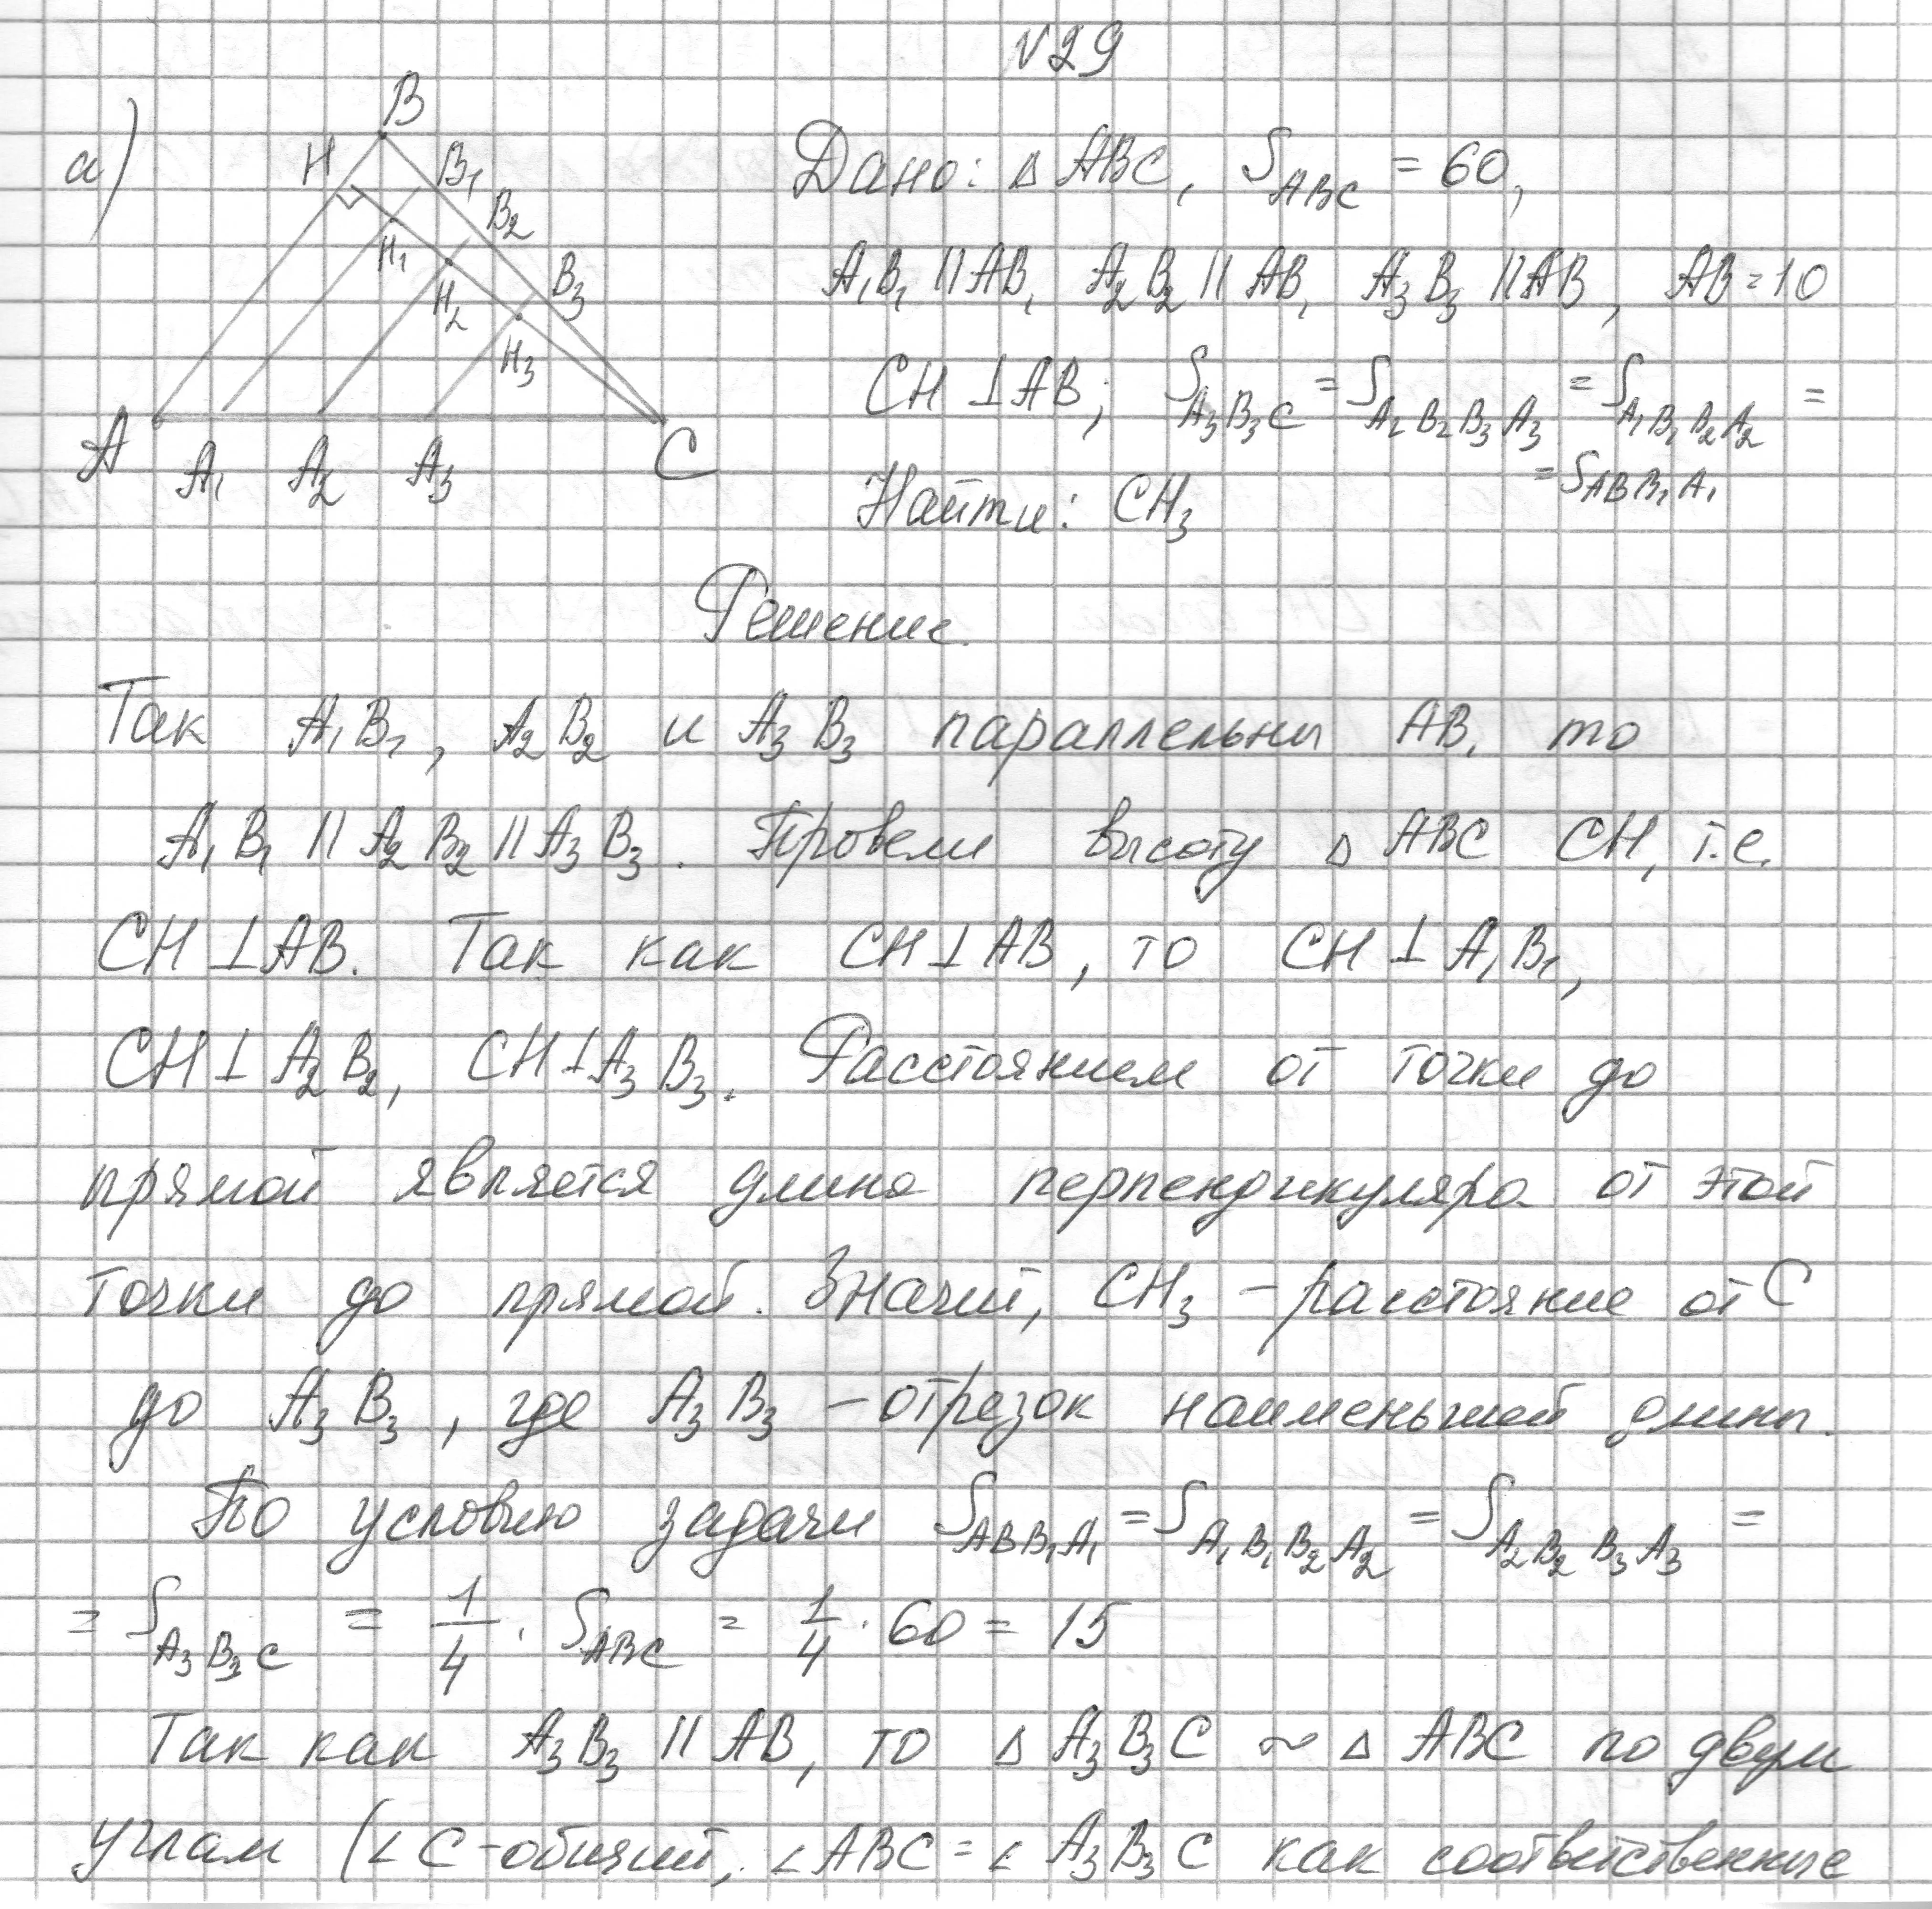 №29
а)
B
H
B₁
B₂
H₁
B₃
H₂
H₃
A
A₁
A₂
A₃
C
Дано: △ ABC, S_ABC = 60,
A₁B₁ || AB, A₂B₂ || AB, A₃B₃ || AB, AB = 10
CH ⊥ AB; S_A₃B₃C = S_A₂B₂B₃A₃ = S_A₁B₁B₂A₂ =
= S_ABB₁A₁
Найти: CH₃
Решение.
Так A₁B₁, A₂B₂ и A₃B₃ параллельны AB, то
A₁B₁ || A₂B₂ || A₃B₃. Провели высоту △ ABC CH, т.е.
CH ⊥ AB. Так как CH ⊥ AB, то CH ⊥ A₁B₁,
CH ⊥ A₂B₂, CH ⊥ A₃B₃. Расстоянием от точки до
прямой является длина перпендикуляра от этой
точки до прямой. Значит, CH₃ – расстояние от C
до A₃B₃, где A₃B₃ – отрезок наименьшей длины.
По условию задачи S_ABB₁A₁ = S_A₁B₁B₂A₂ = S_A₂B₂B₃A₃ =
= S_A₃B₃C = 1/4 · S_ABC = 1/4 · 60 = 15
Так как A₃B₃ || AB, то △ A₃B₃C ~ △ ABC по двум
углам (∠C – общий, ∠ABC = ∠A₃B₃C как соответственные